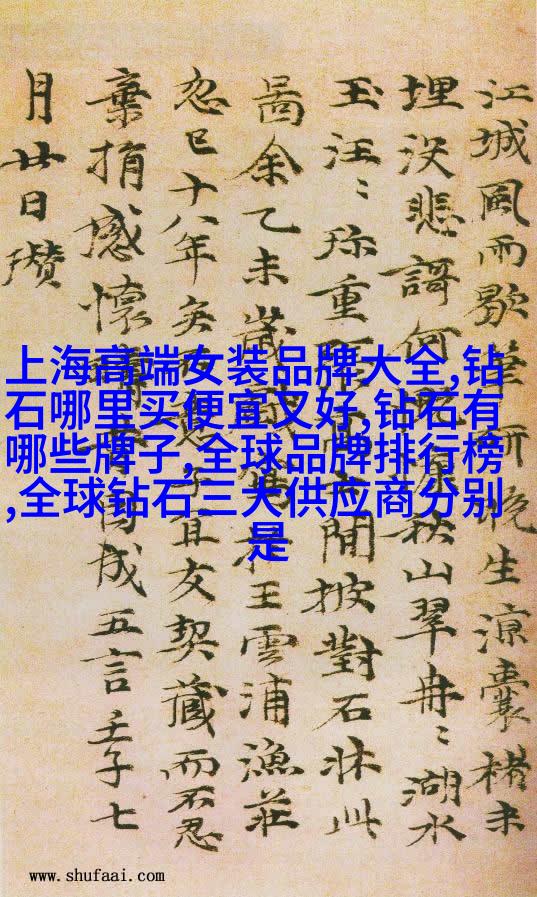 上海高端女装品牌大全,钻
石哪里买便宜又好,钻石有
哪些牌子,全球品牌排行榜
,全球钻石三大供应商分别
是
江城風雨歇筆研晚生涼囊楮未
埋沒悲謌何秋山翠冉〻湖水
玉汪〻珎重間披對石牀此
啚余乙未歲王雲浦漁莊
忽已十八年矣子宜友契藏而不忍
棄捐感懷因成五言壬子七
月廿日瓚
www.shufaai.com